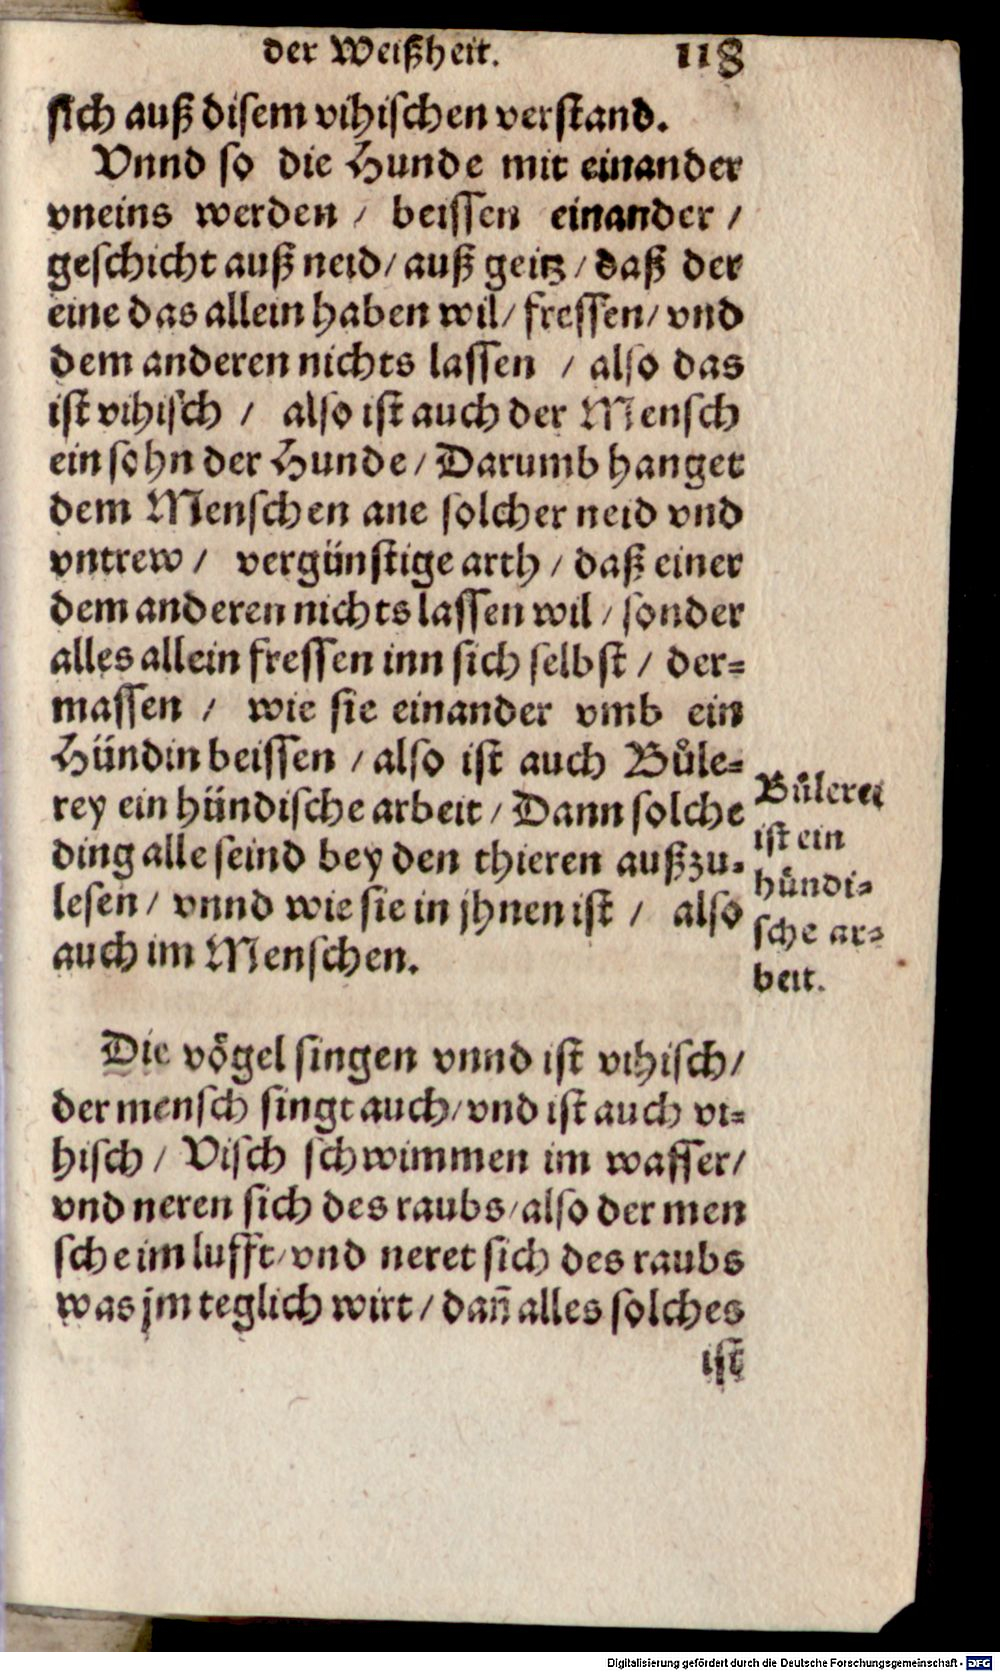 der Weißheit. 118
sich auß disem vihischen verstand.
Vnnd so die Hunde mit einander
vneins werden / beissen einander /
geschicht auß neid / auß geitz / daß der
eine das allein haben wil / fressen / vnd
dem anderen nichts lassen / also das
ist vihisch / also ist auch der Mensch
ein sohn der Hunde / Darumb hanget
dem Menschen ane solcher neid vnd
vntrew / vergünstige arth / daß einer
dem anderen nichts lassen wil / sonder
alles allein fressen inn sich selbst / der-
massen / wie sie einander vmb ein
Hündin beissen / also ist auch Bůle-
rey ein hündische arbeit / Dann solche
ding alle seind bey den thieren außzu-
lesen / vnnd wie sie in jhnen ist / also
auch im Menschen.
Bůlerei
ist ein
hündi-
sche ar-
beit.
Die vögel singen vnnd ist vihisch /
der mensch singt auch / vnd ist auch vi-
hisch / Visch schwimmen im wasser /
vnd neren sich des raubs / also der men
sche im lufft / vnd neret sich des raubs
was jm teglich wirt / dañ alles solches
ist
Digitalisierung gefördert durch die Deutsche Forschungsgemeinschaft - DFG